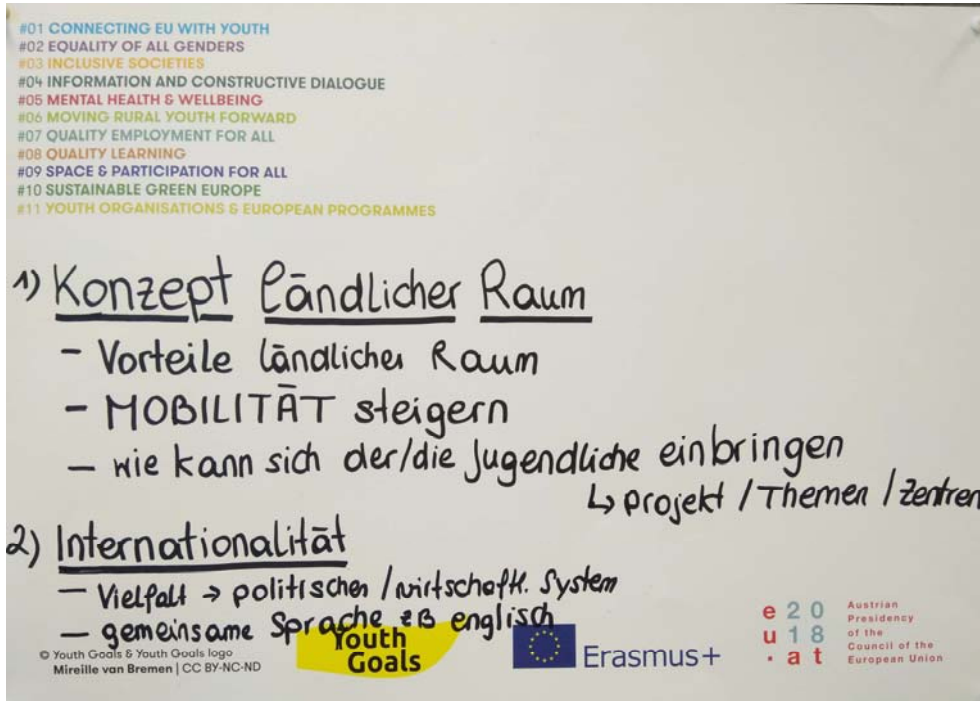 #01 CONNECTING EU WITH YOUTH
#02 EQUALITY OF ALL GENDERS
#03 INCLUSIVE SOCIETIES
#04 INFORMATION AND CONSTRUCTIVE DIALOGUE
#05 MENTAL HEALTH & WELLBEING
#06 MOVING RURAL YOUTH FORWARD
#07 QUALITY EMPLOYMENT FOR ALL
#08 QUALITY LEARNING
#09 SPACE & PARTICIPATION FOR ALL
#10 SUSTAINABLE GREEN EUROPE
#11 YOUTH ORGANISATIONS & EUROPEAN PROGRAMMES
1) Konzept ländlicher Raum
- Vorteile ländlicher Raum
- MOBILITÄT steigern
- wie kann sich der/die Jugendliche einbringen
↳ projekt / Themen / Zentren
2) Internationalität
- Vielfalt → politischen / wirtschaftl. System
- gemeinsame Sprache zB englisch
© Youth Goals & Youth Goals logo
Mireille van Bremen | CC BY-NC-ND
Youth
Goals
Erasmus+
e20
u18
.at
Austrian
Presidency
of the
Council of the
European Union